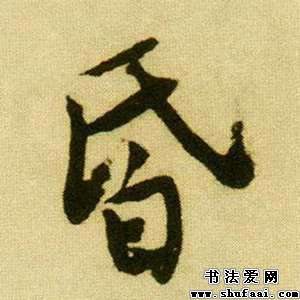 昏
书法爱网
www.shufaai.com